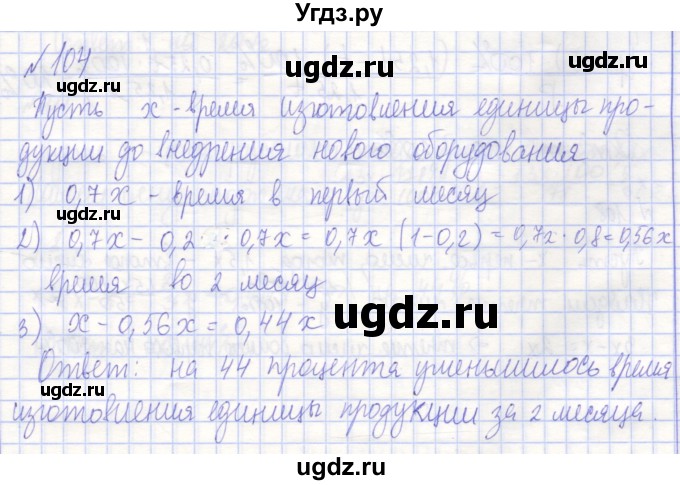 Угдз.ру
№ 104
Пусть x - время изготовления единицы про-
дукции до внедрения нового оборудования
1) 0,7x - время в первый месяц
2) 0,7x - 0,2 · 0,7x = 0,7x (1-0,2) = 0,7x · 0,8 = 0,56x
время во 2 месяц
3) x - 0,56x = 0,44x
Ответ: на 44 процента уменьшилось время
изготовления единицы продукции за 2 месяца.
ugdz.ru
ugdz.ru
ugdz.ru
ugdz.ru
ugdz.ru
ugdz.ru
ugdz.ru
ugdz.ru
ugdz.ru